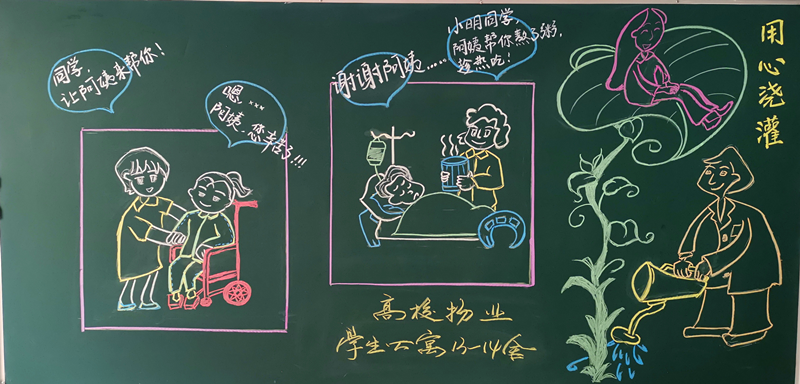 同学,
让阿姨来帮你!
嗯…
阿姨,您辛苦了!!!
谢谢阿姨……
小明同学
阿姨帮你熬了粥,
趁热吃!
高校物业
学生公寓13-14舍
用心浇灌